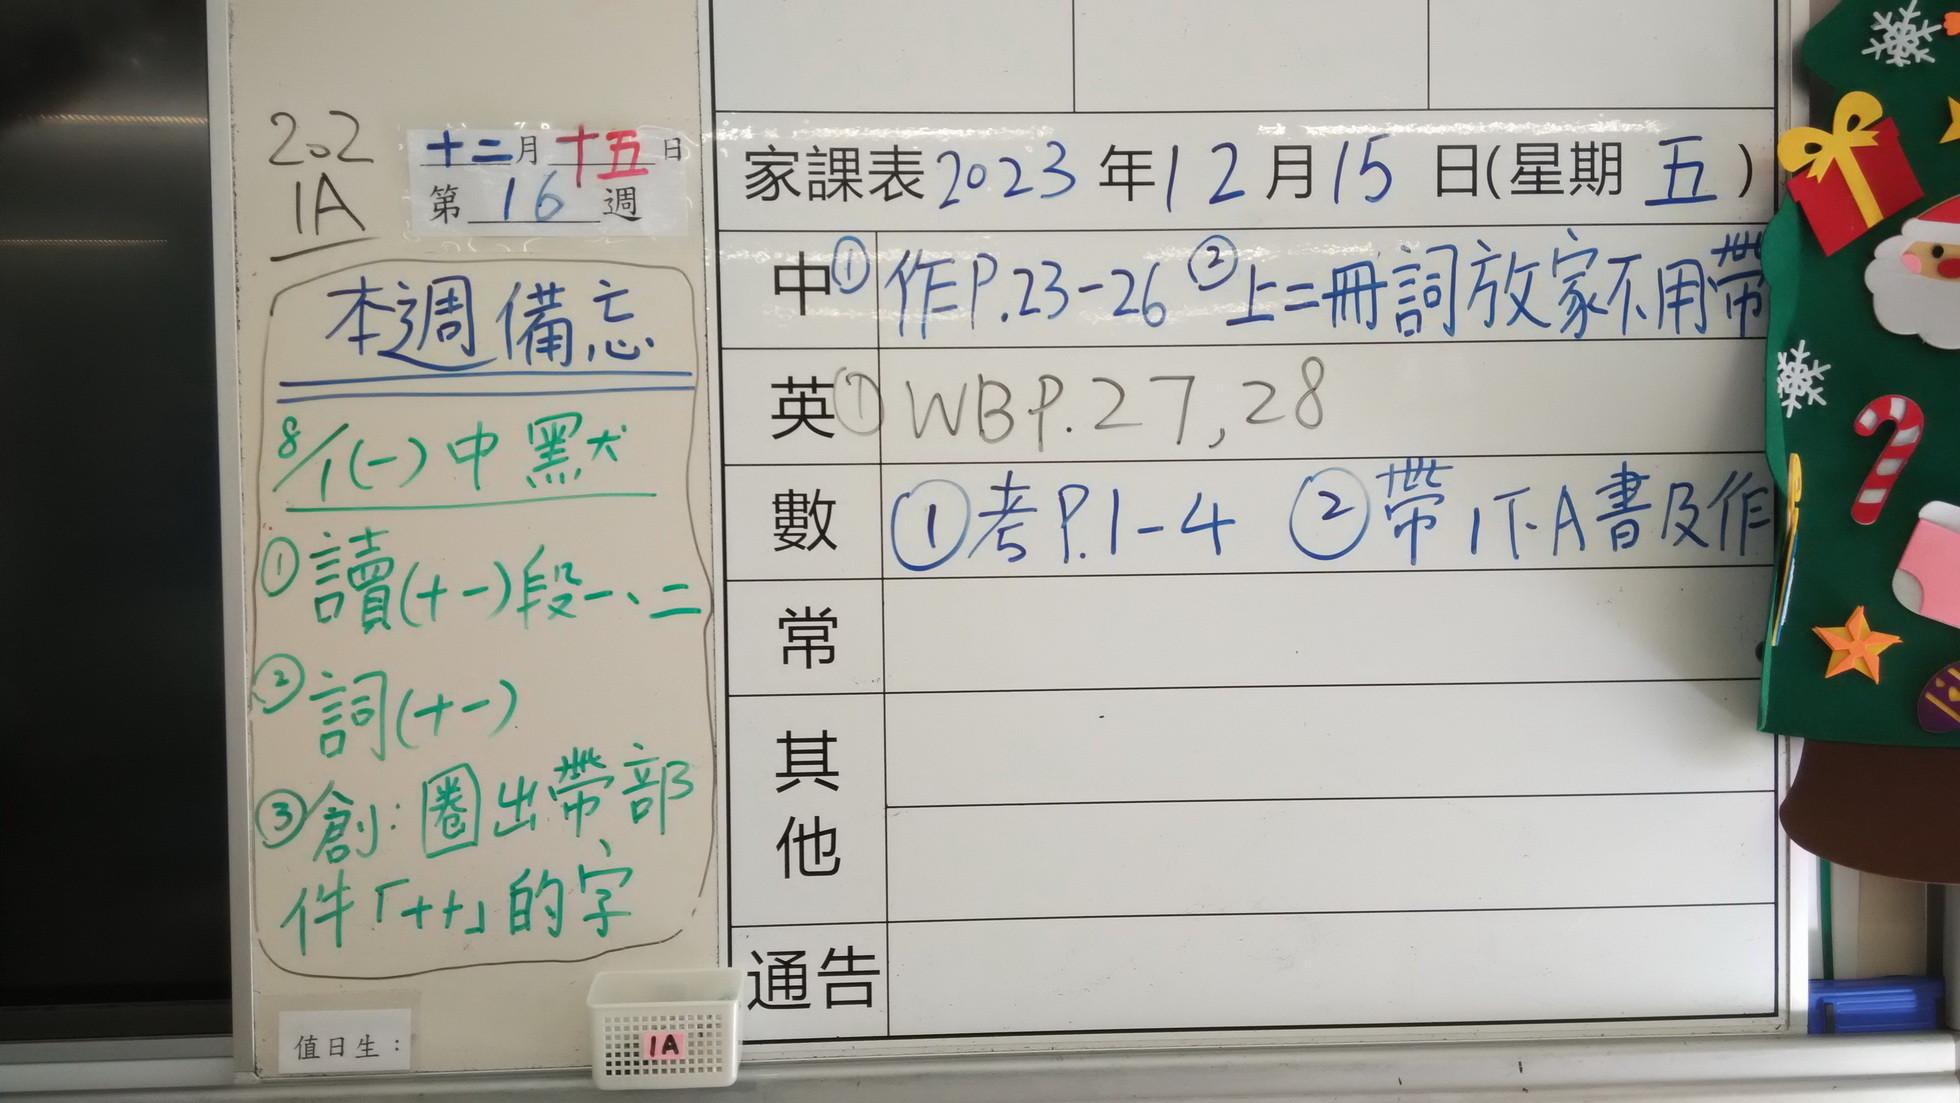 202
1A
十二月十五日
第16週
本週備忘
8/1(一)中默
①讀(十一)段一、二
②詞(十一)
③創:圈出帶部
件「艹」的字
值日生：
1A
家課表2023年12月15日(星期五)
中①作P.23-26 ②上二冊詞放家不用帶
英①WBP.27,28
數①考P.1-4 ②帶1下A書及作
常
其他
通告